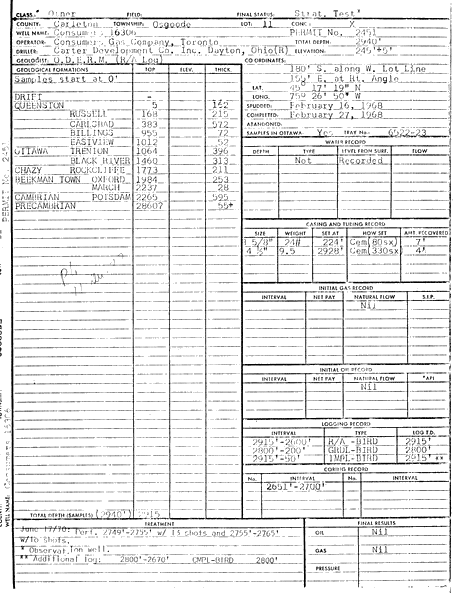 CLASS.* Other FIELD. FINAL STATUS. Strat. Test
COUNTY. Carleton TOWNSHIP. Osgoode LOT: 11 CONC: X
WELL NAME: Consumers 16306 PERMIT No. 2451
OPERATOR: Consumers Gas Company, Toronto TOTAL DEPTH: 2940'
DRILLER: Carter Development Co. Inc. Dayton, Ohio(R) ELEVATION: 245'+5'
GEOLOGIST: O.D.E.R.M. (R/A Log) CO-ORDINATES:
GEOLOGICAL FORMATIONS TOP ELEV. THICK.
Samples start at 0'
DRIFT -
QUEENSTON 5
RUSSELL 168 215
CARLSBAD 383 572
BILLINGS 955 72
EASTVIEW 1012 52
OTTAWA TRENTON 1064 396
BLACK RIVER 1460 313
CHAZY ROCKCLIFFE 1773 211
BEEKMAN TOWN OXFORD 1984 253
MARCH 2237 28
CAMBRIAN POTSDAM 2265 595
PRECAMBRIAN 2860? 55+
TOTAL DEPTH (SAMPLES) (2940') 2915
180' S. along W. Lot Line
155' E. at Rt. Angle
LAT. 45° 17' 19" N
LONG. 75° 26' 50" W
SPUDDED: February 16, 1968
COMPLETED: February 27, 1968
ABANDONED:
SAMPLES IN OTTAWA: Yes TRAY No: 6522-23
WATER RECORD
DEPTH TYPE LEVEL FROM SURF. FLOW
Not Recorded
CASING AND TUBING RECORD
SIZE WEIGHT SET AT HOW SET AMT. RECOVERED
8 5/8" 24# 224' Cem(80sx) 7'
4 ½" 9.5 2928' Cem(330sx) 4'
INITIAL GAS RECORD
INTERVAL NET PAY NATURAL FLOW S.I.P.
Nil
INITIAL OIL RECORD
INTERVAL NET PAY NATURAL FLOW °API
Nil
LOGGING RECORD
INTERVAL TYPE LOG T.D.
2915'-2600' R/A -BIRD 2915'
2800'-200' GRDL-BIRD 2800'
2915'-50' IMPL-BIRD 2915' **
CORING RECORD
No. INTERVAL No. INTERVAL
2651'-2700'
TREATMENT
June 17/70: Perf. 2749'-2755' w/ 13 shots and 2755'-2765'
w/16 shots.
* Observation well.
** Additional log: 2800'-2670' CMPL-BIRD 2800'
FINAL RESULTS
OIL Nil
GAS Nil
PRESSURE
PERMIT No. 2451
WELL NAME: Consumers 16306